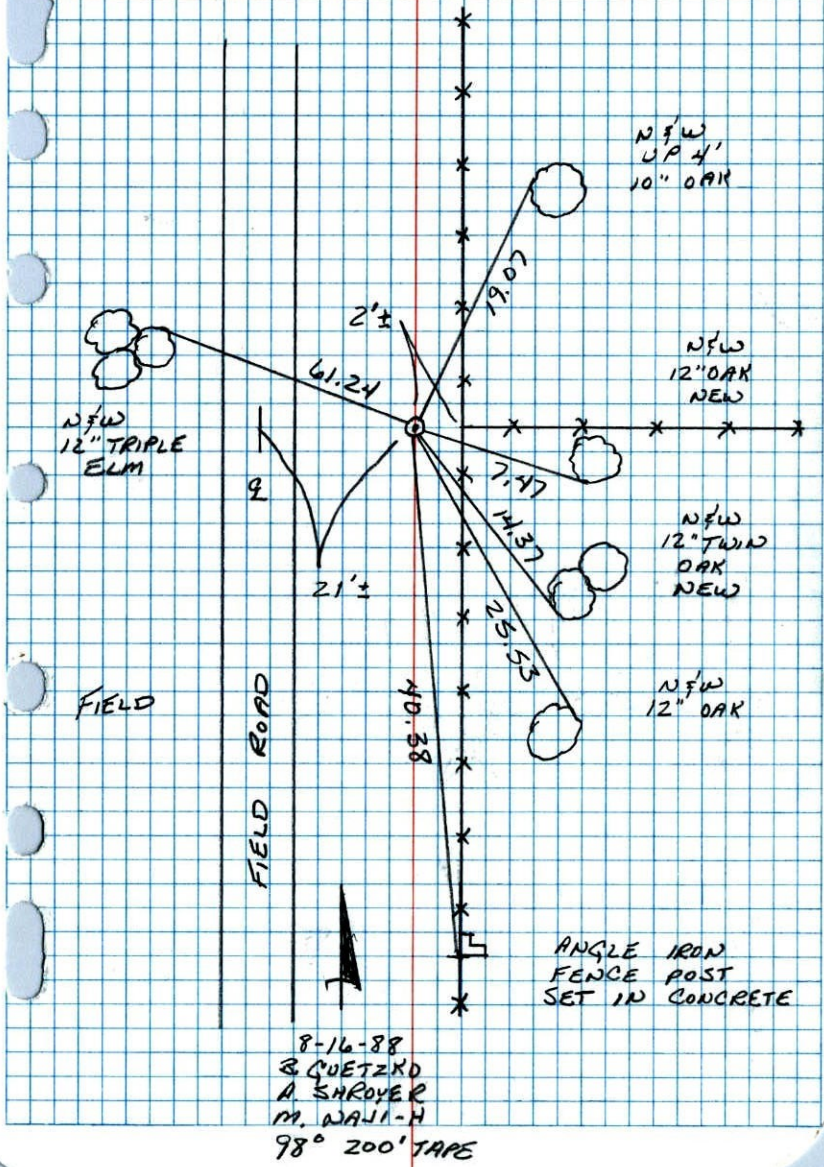 N & W
UP 4'
10" OAK
19.07
2'±
61.24
N & W
12" OAK
NEW
N & W
12" TRIPLE
ELM
℄
7.47
14.37
N & W
12" TWIN
OAK
NEW
21'±
25.53
N & W
12" OAK
FIELD
FIELD ROAD
40.38
ANGLE IRON
FENCE POST
SET IN CONCRETE
8-16-88
B. GUETZKO
A. SHROYER
M. NAJI-H
98° 200' TAPE